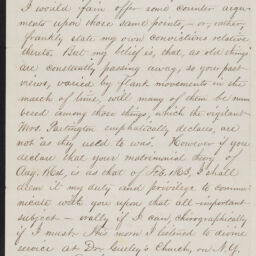 I would fain offer some counter argu-
ments upon those same points, – or, rather,
frankly state my own convictions relative
thereto. But my belief is, that, as old things
are constantly passing away, so your past
views, varied by flank movements in the
march of time, will many of them be num
bered among those things, which the vigilant
Mrs. Partington emphatically declares, are
not "as they used to was." However if you
declare that your matrimonial theory of
Aug. 1864, is as that of Feb. 1863, I shall
deem it my duty and privilege to commu
nicate with you upon that all-important
subject – orally if I can, chirographically
if I must. This morn I listened to divine
service at Dr. Gurley's Church, on N.Y.